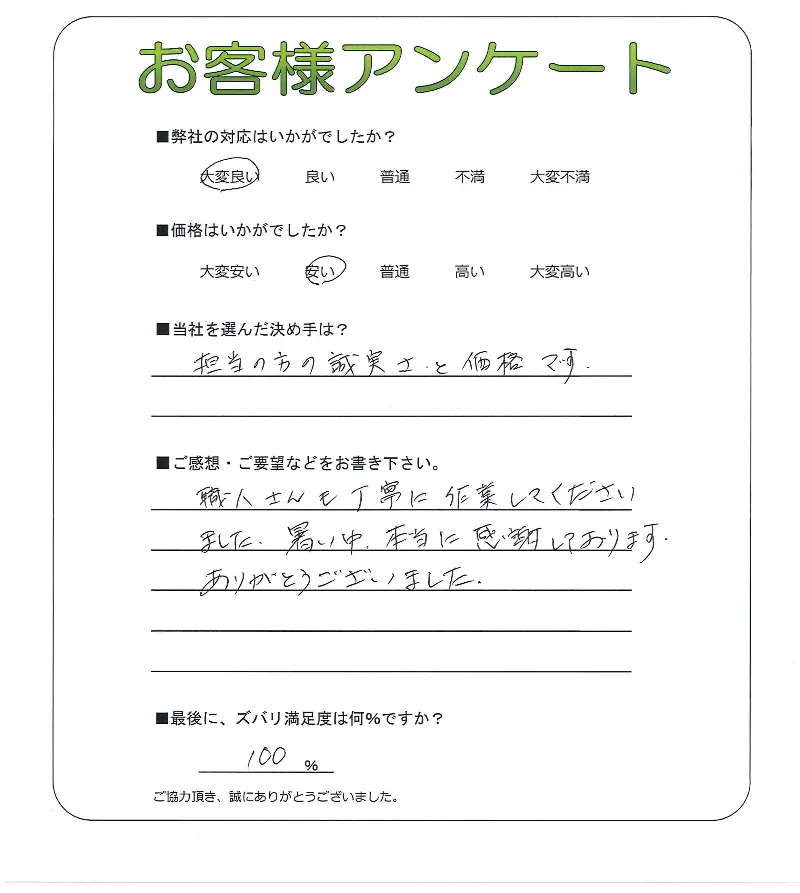 お客様アンケート
■弊社の対応はいかがでしたか？
大変良い 良い 普通 不満 大変不満
■価格はいかがでしたか？
大変安い 安い 普通 高い 大変高い
■当社を選んだ決め手は？
担当の方の誠実さと価格です.
■ご感想・ご要望などをお書き下さい。
職人さんも丁寧に作業してください
ました. 暑い中, 本当に感謝しております.
ありがとうございました.
■最後に、ズバリ満足度は何%ですか？
100 %
ご協力頂き、誠にありがとうございました。